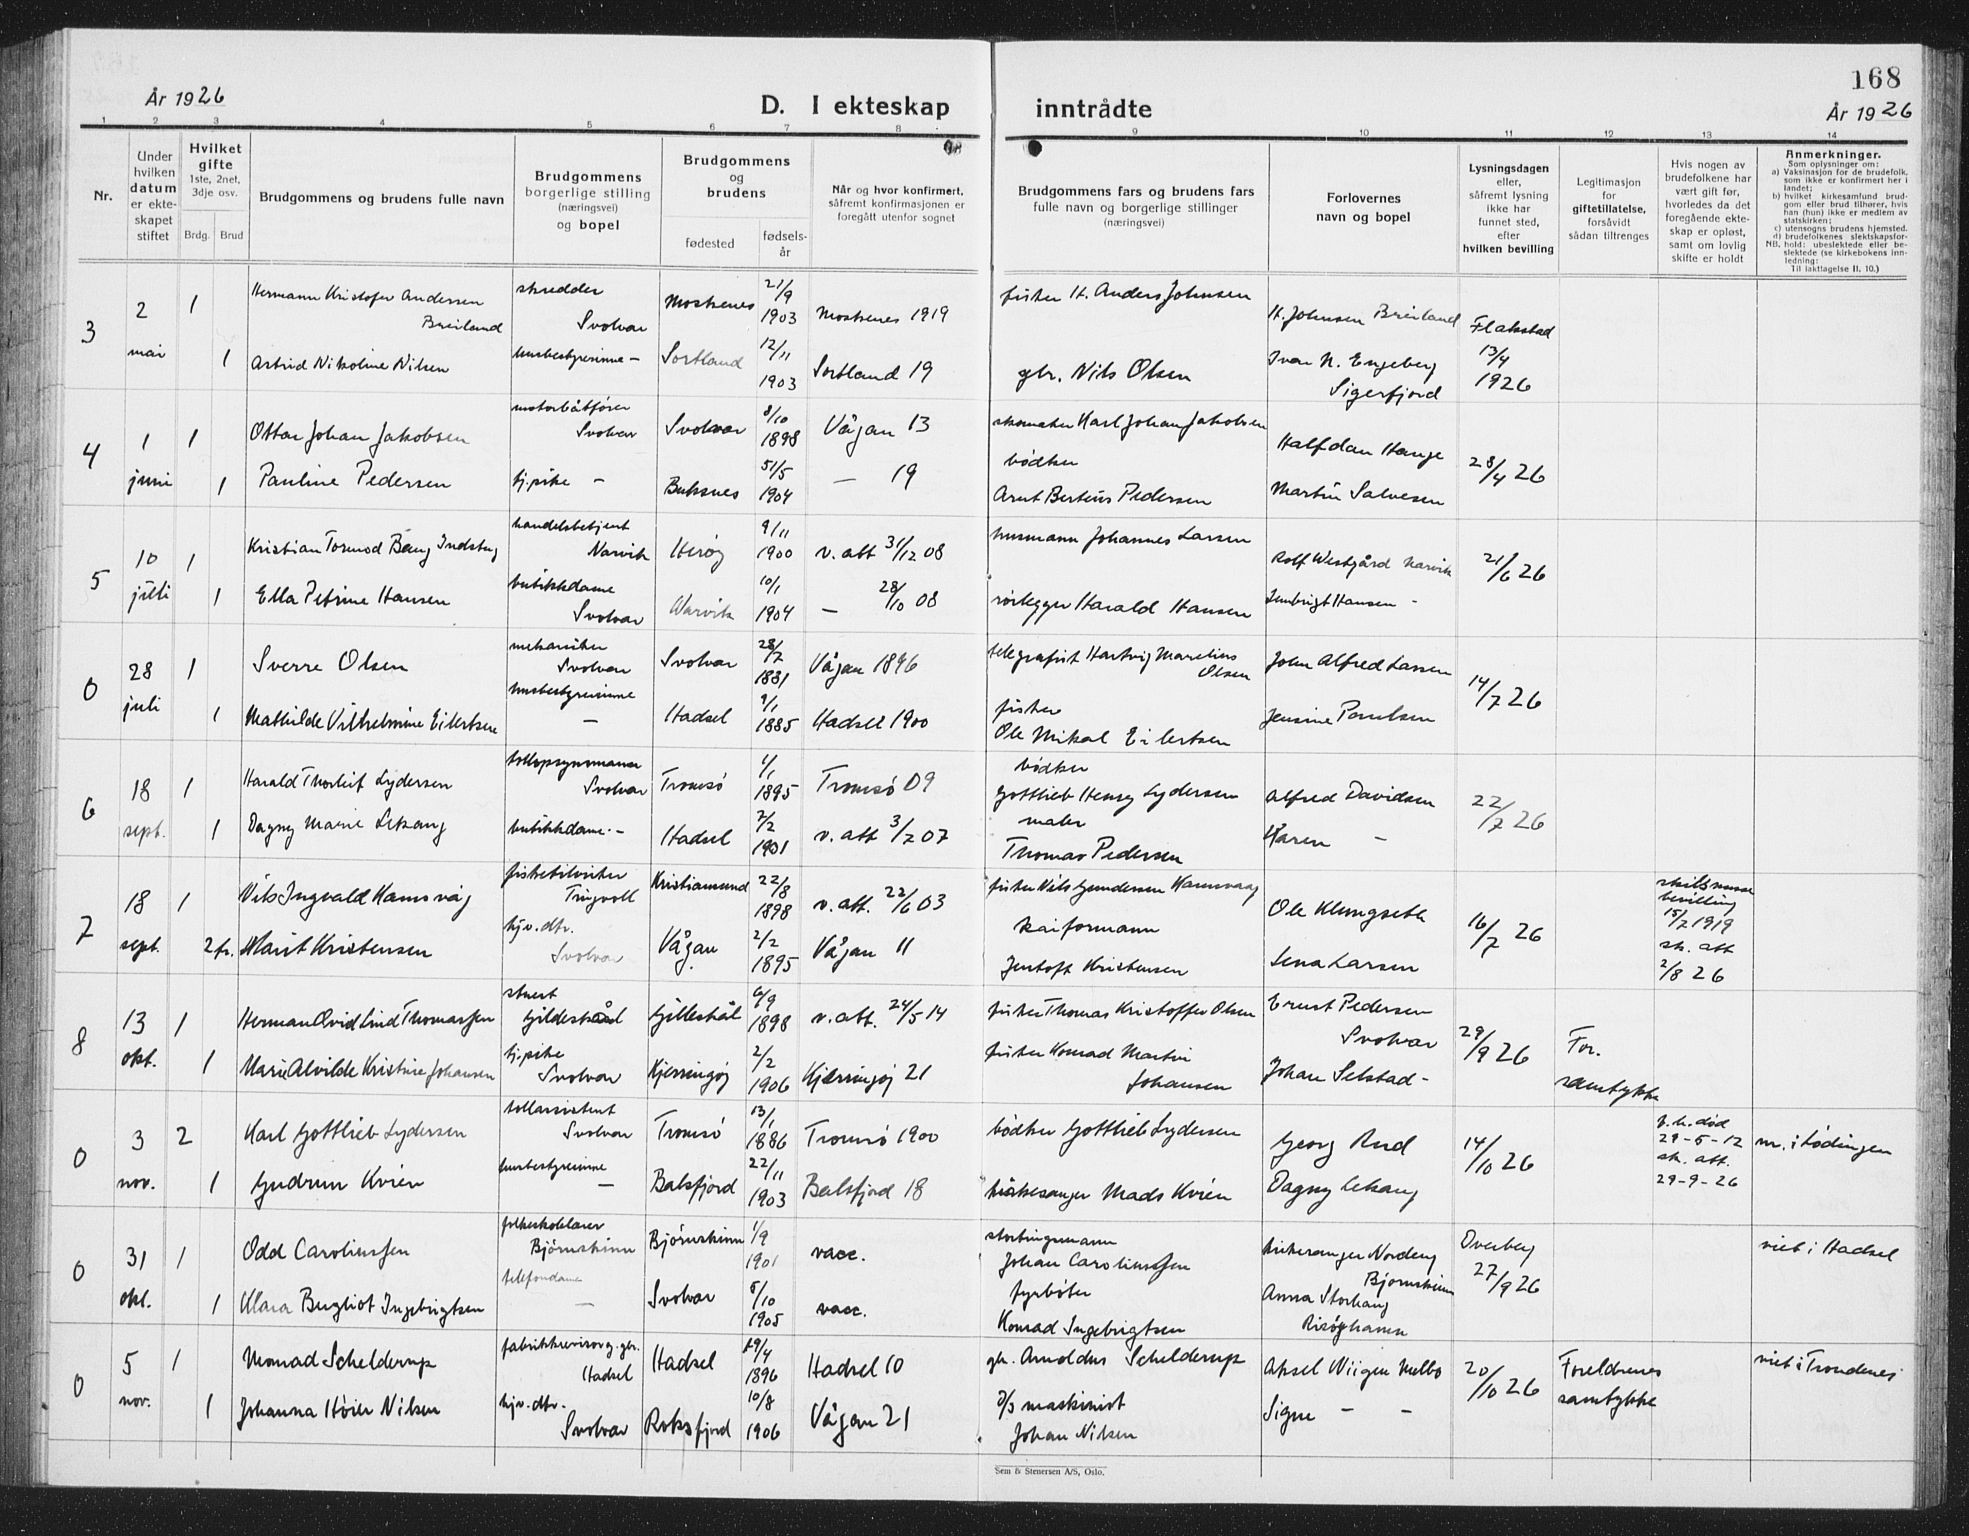 168
År 1926
D. I ekteskap inntrådte
År 1926
1 2 3 4 5 6 7 8 9 10 11 12 13 14
Nr.
Under hvilken datum er ekteskapet stiftet
Hvilket gifte 1ste, 2net, 3dje osv.
Brdg. Brud
Brudgommens og brudens fulle navn
Brudgommens borgerlige stilling (næringsvei) og bopel
Brudgommens og brudens
fødested
fødselsår
Når og hvor konfirmert, såfremt konfirmasjonen er foregått utenfor sognet
Brudgommens fars og brudens fars fulle navn og borgerlige stillinger (næringsvei)
Forlovernes navn og bopel
Lysningsdagen eller, såfremt lysning ikke har funnet sted, efter hvilken bevilling
Legitimasjon for giftetillatelse, forsåvidt sådan tiltrenges
Hvis nogen av brudefolkene har vært gift før, hvorledes da det foregående ekteskap er opløst, samt om lovlig skifte er holdt
Anmerkninger.
Som oplysninger om:
a) Vaksinasjon for de brudefolk, som ikke er konfirmert her i landet;
b) hvilket kirkesamfund brudgom eller brud tilhører, hvis han (hun) ikke er medlem av statskirken;
c) utensogns brudens hjemsted.
d) brudefolkenes slektskapsforhold: ubeslektede eller beslektede (se kirkebokens innledning:
NB.
Til iakttagelse II. 10.)
3 2 mai 1 Hermann Kristofer Andersen Breiland skredder Svolvær Moskenes 21/9 1903 Moskenes 1919 fisker H. Anders Johnsen H. Johnsen Breiland Flakstad 13/4 1926
1 Astrid Nikoline Nilsen husbestyrerinne - Sortland 12/11 1903 Sortland 19 gbr. Nils Olsen Ivar N. Engeberg Sigerfjord
4 1 juni 1 Ottar Johan Jakobsen motorbåtfører Svolvær Svolvær 8/10 1898 Vågan 13 skomaker Karl Johan Jakobsen Halfdan Hauge 28/4 26
1 Pauline Pedersen tj.pike - Buksnes 31/5 1904 - 19 bødker Arnt Berteus Pedersen Martin Salvesen
5 10 juli 1 Kristian Tormod Bang handelsbetjent Narvik Herøy 9/11 1900 v. att 31/12 08 husmann Johannes Larsen Rolf Westgård Narvik 21/6 26
1 Ella Petrine Hansen butikkdame Svolvær Narvik 10/1 1904 - 28/10 08 rørlegger Harald Hansen Hansen -
0 28 juli 1 Sverre Olsen mekaniker Svolvær Svolvær 28/7 1881 Vågan 1896 telegrafist Hartvig Marelius Olsen John Alfred Larsen 14/7 26
1 Mathilde Vilhelmine Eilertsen husbestyrerinne - Hadsel 9/1 1885 Hadsel 1900 fisker Ole Mikal Eilertsen Jensine Paulsen
6 18 sept. 1 Harald Thorleif Lydersen tollopsynsmann Svolvær Tromsø 1/1 1895 Tromsø 09 bødker Gottlieb Henry Lydersen Alfred Davidsen 22/7 26
1 Dagny Marie Lekang butikkdame - Hadsel 2/2 1901 v. att 3/7 07 maler Thomas Pedersen Karen -
7 18 sept. 1 Nils Ingvald Hamsvåg fisketilvirker Tingvoll Kristiansund 22/8 1898 v. att. 22/6 03 fisker Nils Gundersen Hamsvaag Ole Klungseth 16/7 26 skilsmisse bevilling 15/7 1919 sk. att 2/8 26
2 fr. Marit Kristensen hjv. dtr. Svolvær Vågan 2/2 1895 Vågan 11 kaiformann Jentoft Kristensen Lena Larsen
8 13 okt. 1 Herman Ovid Lind Thomassen stuert Gildeskål Gilleskål 6/9 1898 v. att. 24/5 14 fisker Thomas Kristoffer Olsen Ernst Pedersen Svolvær 29/9 26 For. samtykke
1 Marie Alvilde Kristine Johansen tj.pike Svolvær Kjerringøy 2/2 1906 Kjerringøy 21 fisker Konrad Martin Johansen Johan Selstad -
0 3 nov. 2 Karl Gottlieb Lydersen tollassistent Svolvær Tromsø 13/1 1886 Tromsø 1900 bødker Gottlieb Lydersen Georg Rud 14/10 26 f. h. død 29-5-12 sk. att. 29-9-26 m. i Lødingen
1 Gudrun Kvien husbestyrerinne - Balsfjord 22/11 1903 Balsfjord 18 kirkesanger Mads Kvien Dagny Lekang
0 31 okt. 1 Odd Caroliussen folkeskolelærer Bjørnskinn Bjørnskinn 1/9 1901 vacc. stortingsmann Johan Caroliussen kirkesanger Nordeng Bjørnskinn Dverberg 27/9 26 viet i Hadsel
1 Klara Bergliot Ingebrigtsen telefondame - Svolvær 5/10 1905 vacc. fyrbøter Konrad Ingebrigtsen Anna Storhaug Risøyhamn
0 5 nov. 1 Monrad Schelderup fabrikkrevisor g. gbr. Hadsel Hadsel 29/4 1896 Hadsel 10 gbr. Arnoldus Schelderup Aksel Wiigen Melbo 20/10 26 Foreldrenes samtykke viet i Trondenes
1 Johanna Høier Nilsen hjv. dtr. Svolvær Roksfjord 10/8 1906 Vågan 21 D/S maskinist Johan Nilsen Signe - -
Sem & Stenersen A/S, Oslo.